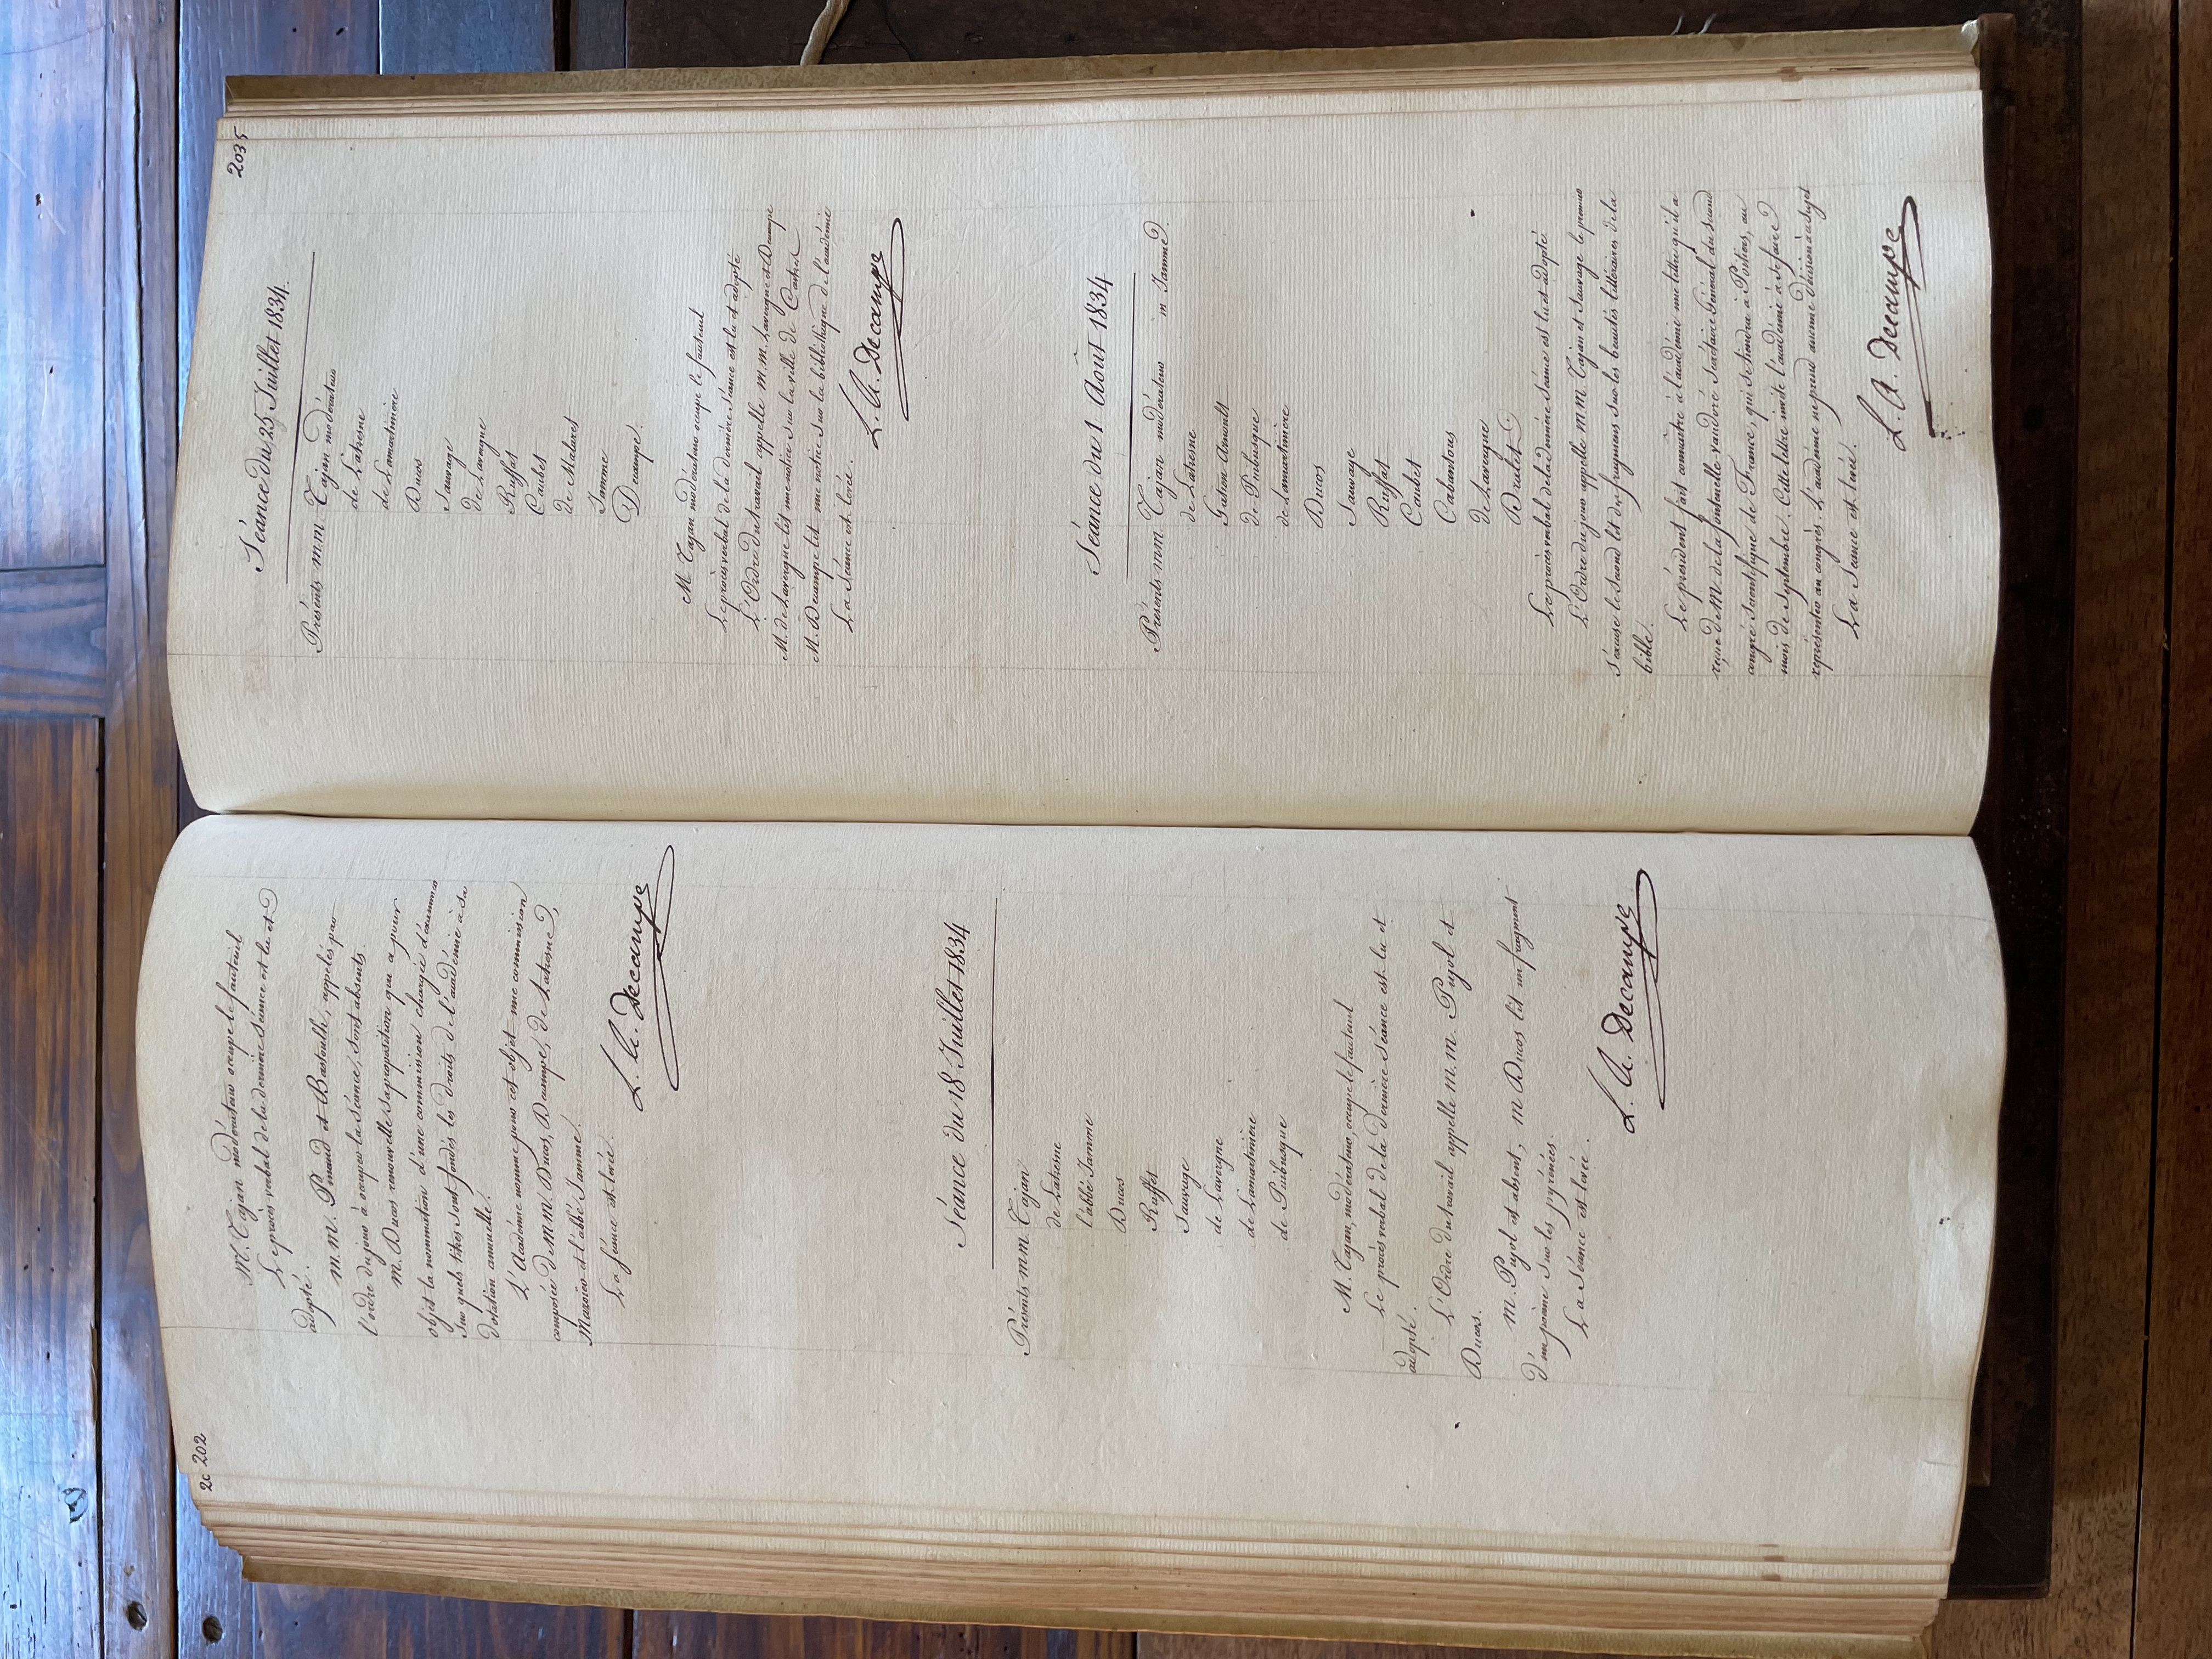 2c 202
M. Tajan modérateur occupe le fauteuil
Le procès verbal de la dernière séance est lu et
adopté.
m. m. Pinaud et Bastoulh, appelés par
l'ordre du jour à occuper la séance, sont absents
m. Ducos renouvelle sa proposition qui a pour
objet la nomination d'une commission chargée d'examiner
sur quels titres sont fondés les droits de l'académie à sa
dotation annuelle.
L'Académie nomme pour cet objet une commission
composée de MM. Ducos, Decampe, de Lahesne,
Mazoier et l'abbé Jamme.
La séance est levée.
L. A. Decampe
Séance du 18 Juillet 1834
Présents mm. Tajan
de Lahesne
l'abbé Jamme
Ducos
Ruffat
Sauvage
de Lavergne
de Lamartinière
de Puibusque
M. Tajan, modérateur, occupe le fauteuil
Le procès verbal de la dernière séance est lu et
adopté.
L'Ordre du travail appelle m. m. Pujol et
Ducos.
m. Pujol est absent, m Ducos lit un fragment
d'un poème sur les pyrénées.
La séance est levée.
L. A. Decampe
2035
Séance du 25 Juillet 1834.
Présents m.m. Tajan modérateur
de Lahesne
de Lamartinière
Ducos
Sauvage
de Lavergne
Ruffat
Caubet
de Malaret
Jamme
Decampe.
M. Tajan modérateur occupe le fauteuil
Le procès verbal de la dernière séance est lu et adopté
L'Ordre du travail appelle m. m. Lavergne et Decampe
M. de Lavergne lit une notice sur la ville de Castres
M. Decampe lit une notice sur la bibliothèque de l'académie
La séance est levée.
L. A. Decampe
Séance du 1 Août 1834
Présents mm. Tajan modérateur m Jamme.
de Lahesne
Gatien Arnoult
de Puibusque
de Lamartinière
Ducos
Sauvage
Ruffat
Caubet
Cabantous
de Lavergne
Dralet
Le procès verbal de la dernière séance est lu et adopté.
L'Ordre du jour appelle MM. Tajan et Sauvage le premier
s'excuse le second lit des fragmens sur les beautés littéraires de la
bible.
Le président fait connaître à l'académie une lettre qu'il a
reçue de M. de la fontenelle-vaudoré Secrétaire Général du second
congrès scientifique de France, qui se tiendra à Poitiers, au
mois de septembre. Cette lettre invite l'académie à se faire
représenter au congrès. L'académie ne prend aucune décision à ce sujet
La séance est levée.
L. A. Decampe